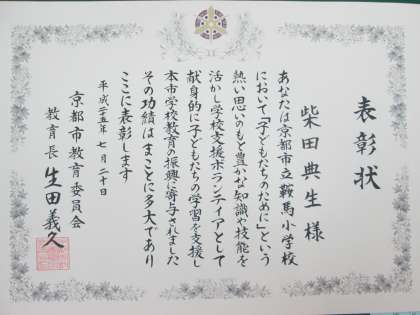 表彰状
柴田典生様
あなたは京都市立鞍馬小学校
において「子どもたちのために」という
熱い思いのもと豊かな知識や技能を
活かし学校支援ボランティアとして
献身的に子どもたちの学習を支援し
本市学校教育の振興に寄与されました
その功績はまことに多大であり
ここに表彰します
平成二十五年七月二十日
京都市教育委員会
教育長 生田義久